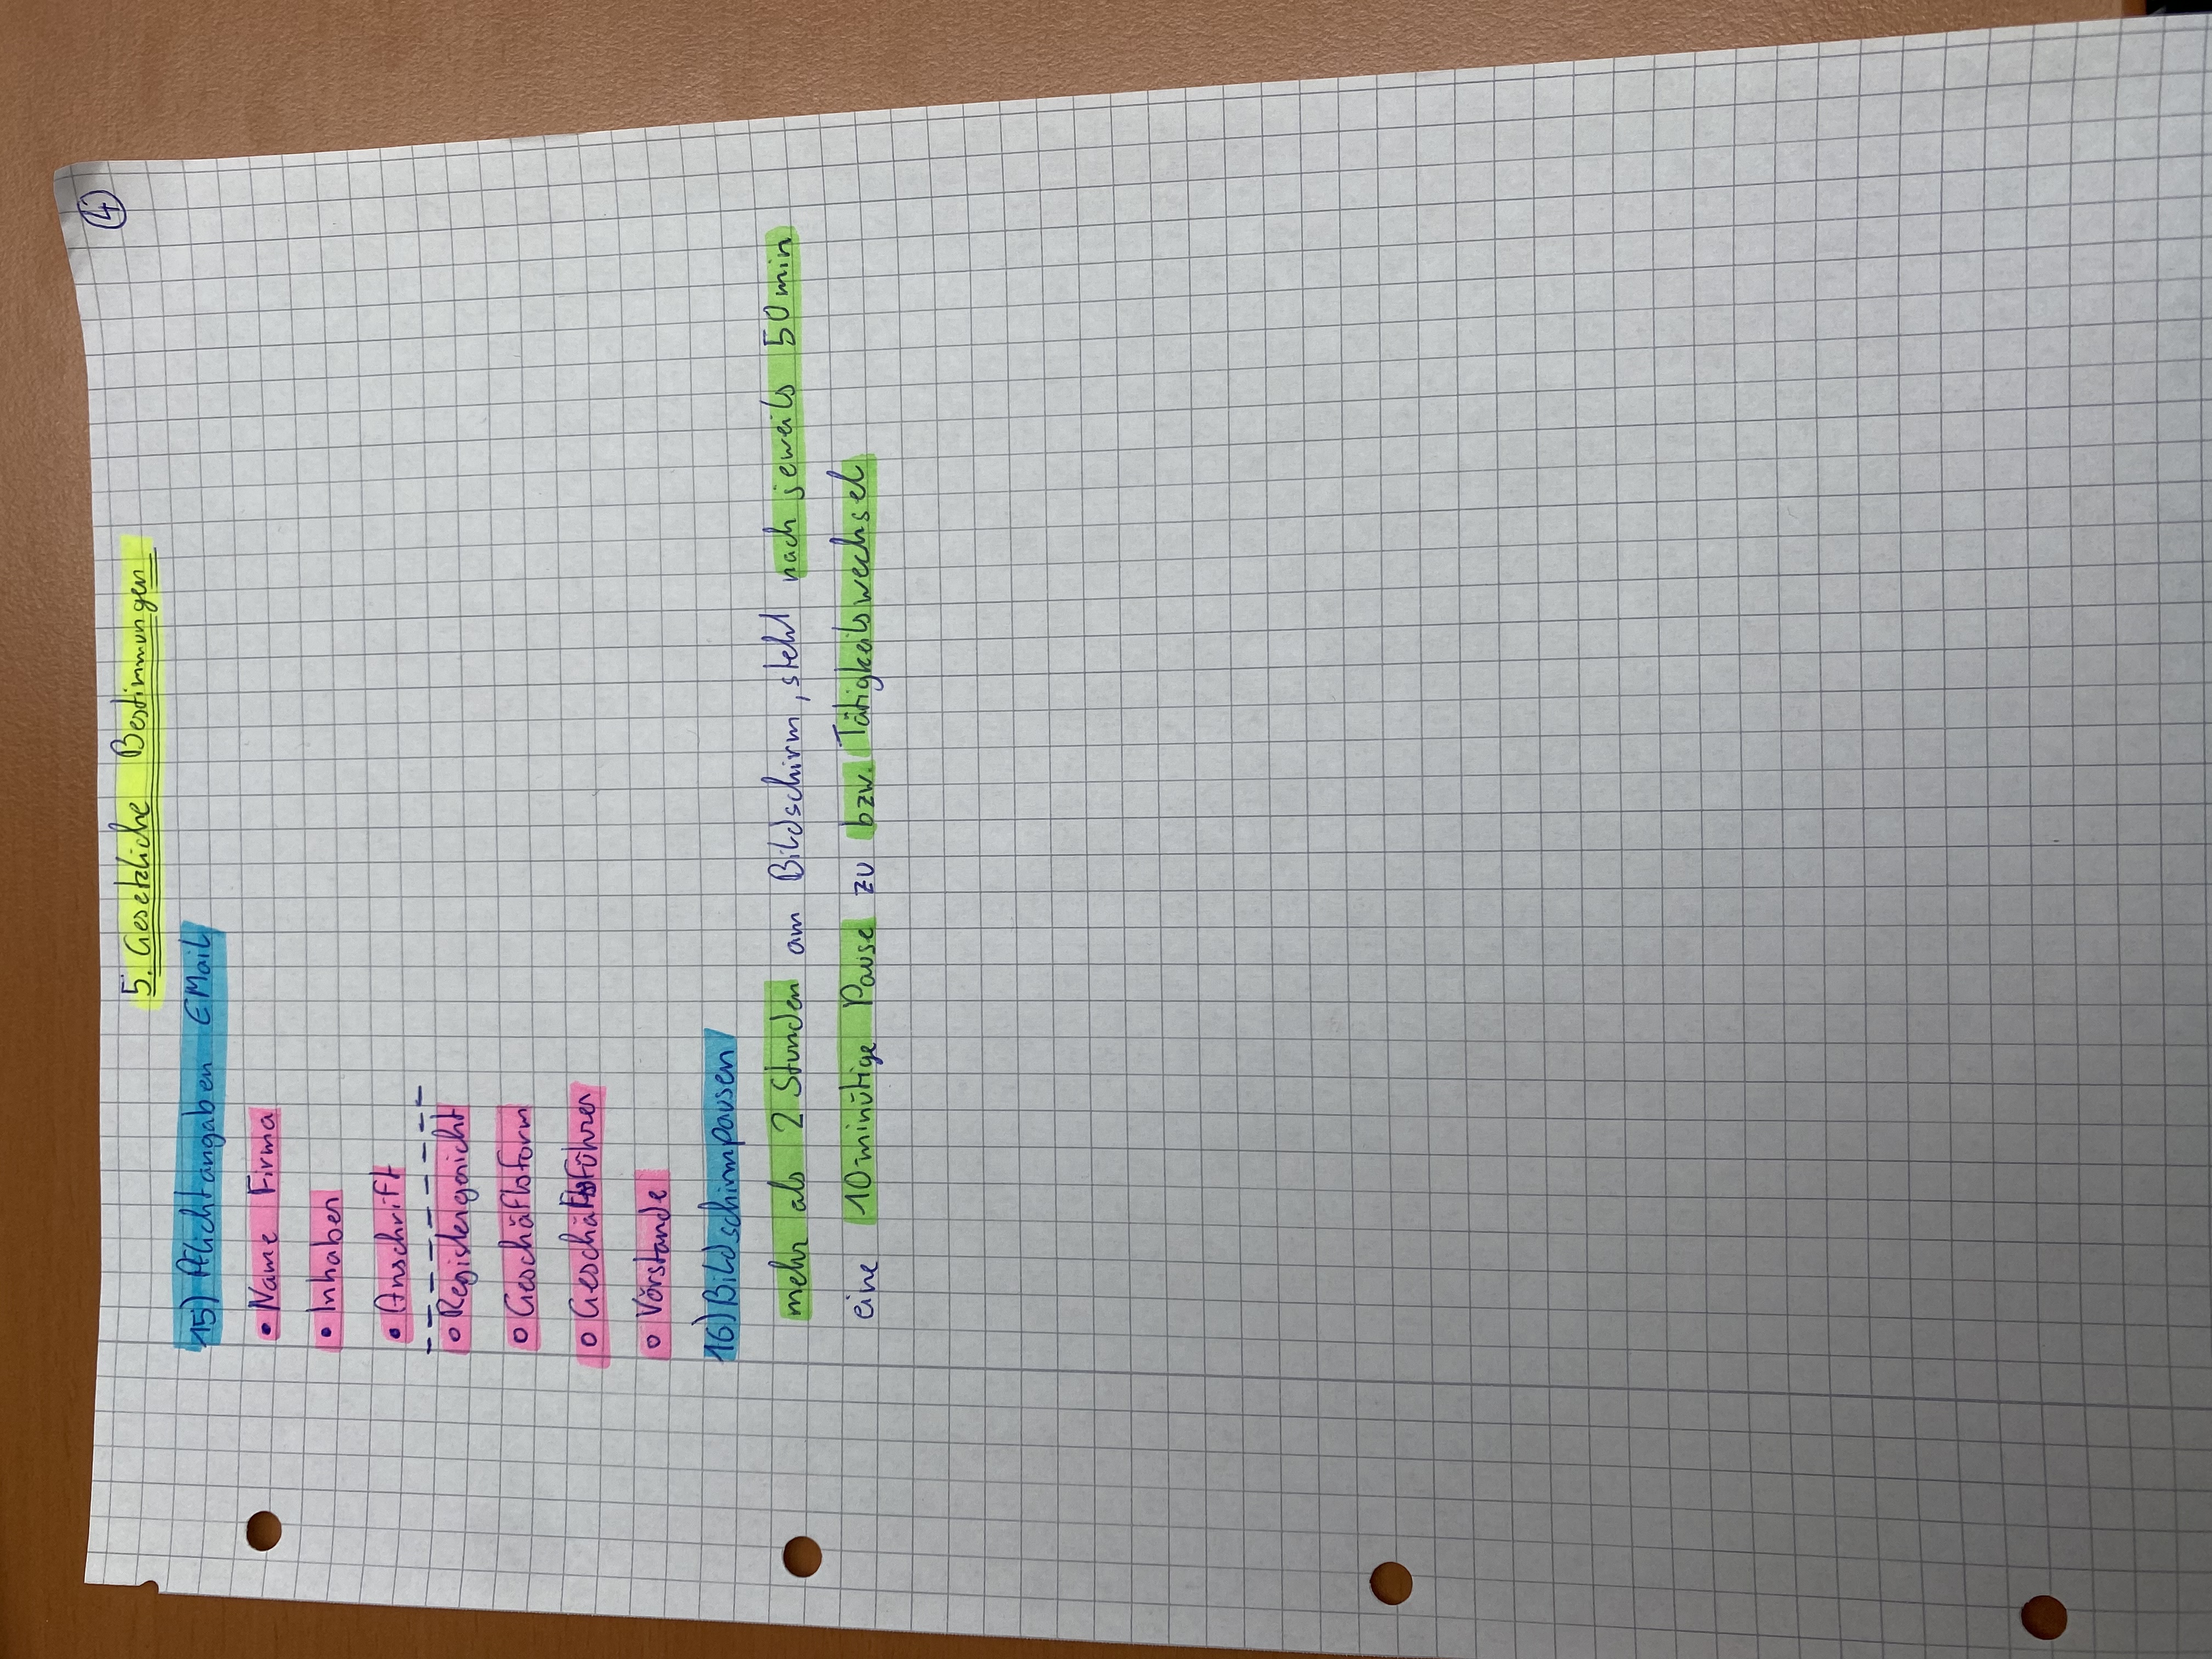 4
5. Gesetzliche Bestimmungen
15) Pflichtangaben EMail
• Name Firma
• Inhaber
• Anschrift
o Registergericht
o Geschäftsform
o Geschäftsführer
o Vörstande
16) Bildschirmpausen
mehr als 2 Stunden am Bildschirm, steht nach jeweils 50 min
eine 10 minütige Pause zu bzw. Tätigkeitswechsel